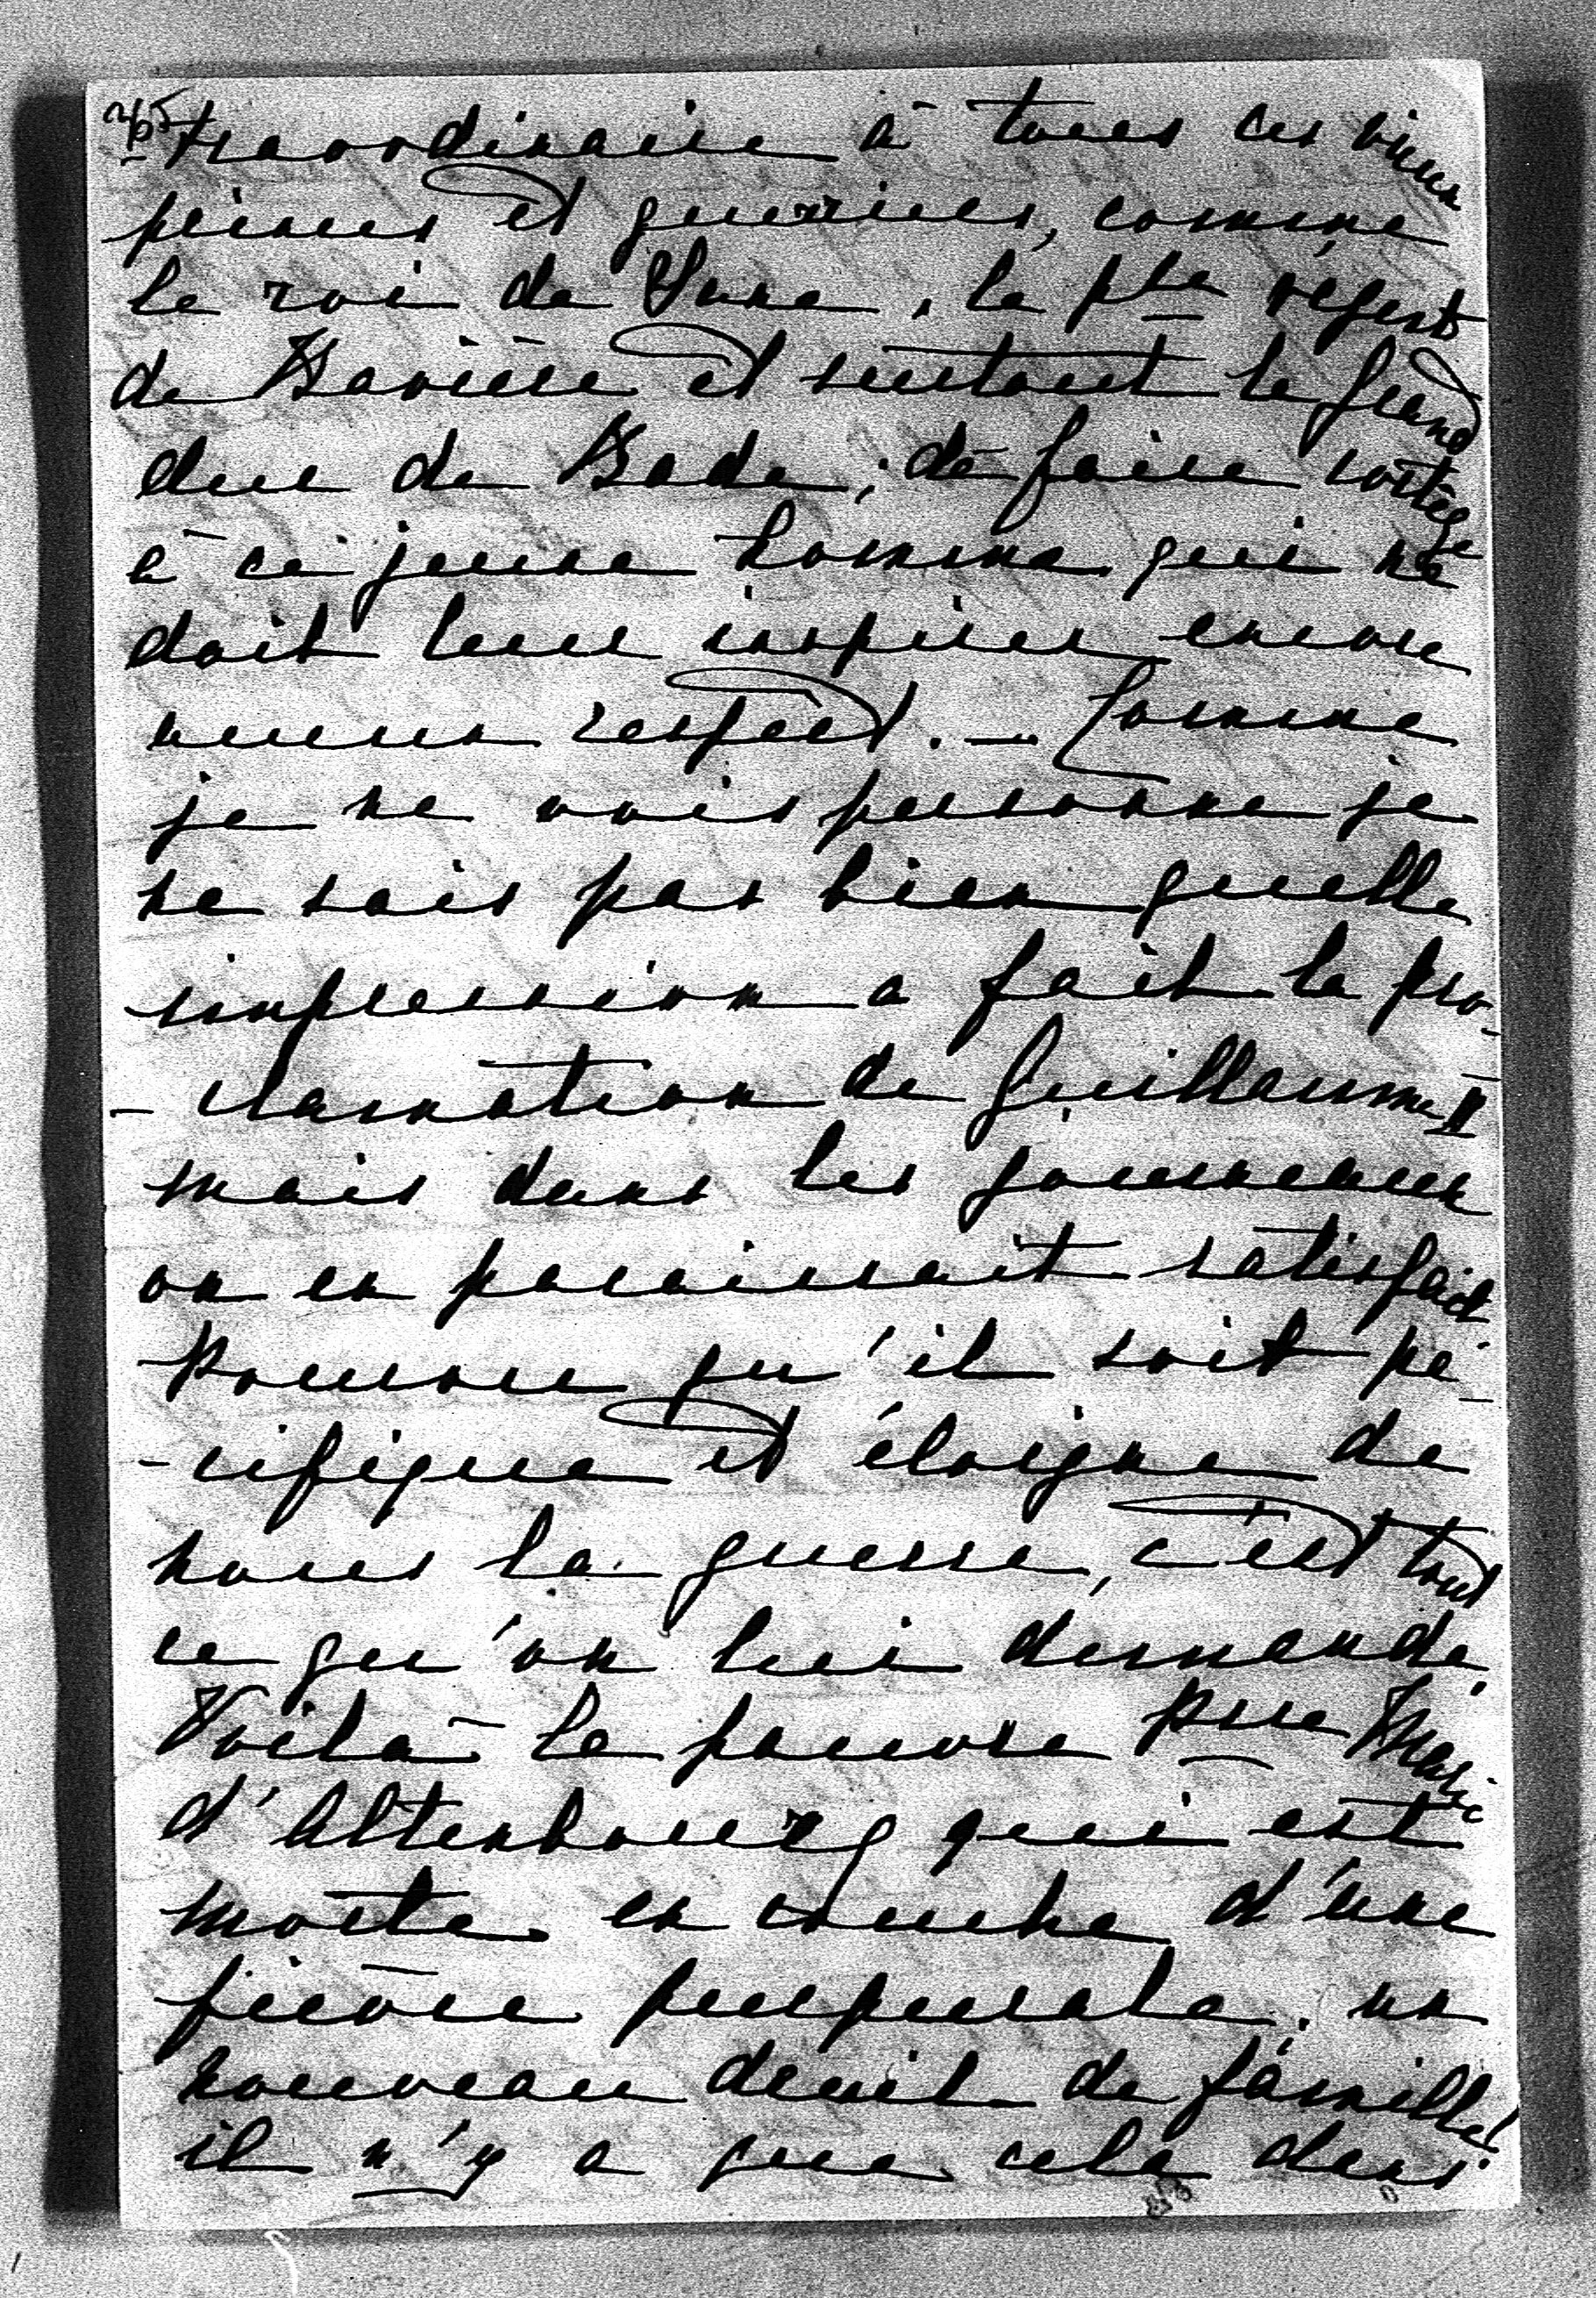 -traordinaire à tous ces vieux
princes et guerriers, comme
le roi de Saxe, le pce régent
de Bavière et surtout le grand
duc de Bade, de faire cortège
à ce jeune homme qui ne
doit leur inspirer encore
aucun respect. — Comme
je ne vois personne je
ne sais pas bien quelle
impression a fait la pro-
-clamation de Guillaume II
mais dans les journaux
on en paraissait satisfait
Pourvu qu'il soit pa-
-cifique et éloigne de
nous la guerre, c'est tout
ce qu'on lui demande.
Voilà la pauvre Psse Marie
d'Altenbourg qui est
morte en couche d'une
fièvre puerpérale. un
nouveau deuil de famille!
il n'y a que cela dans